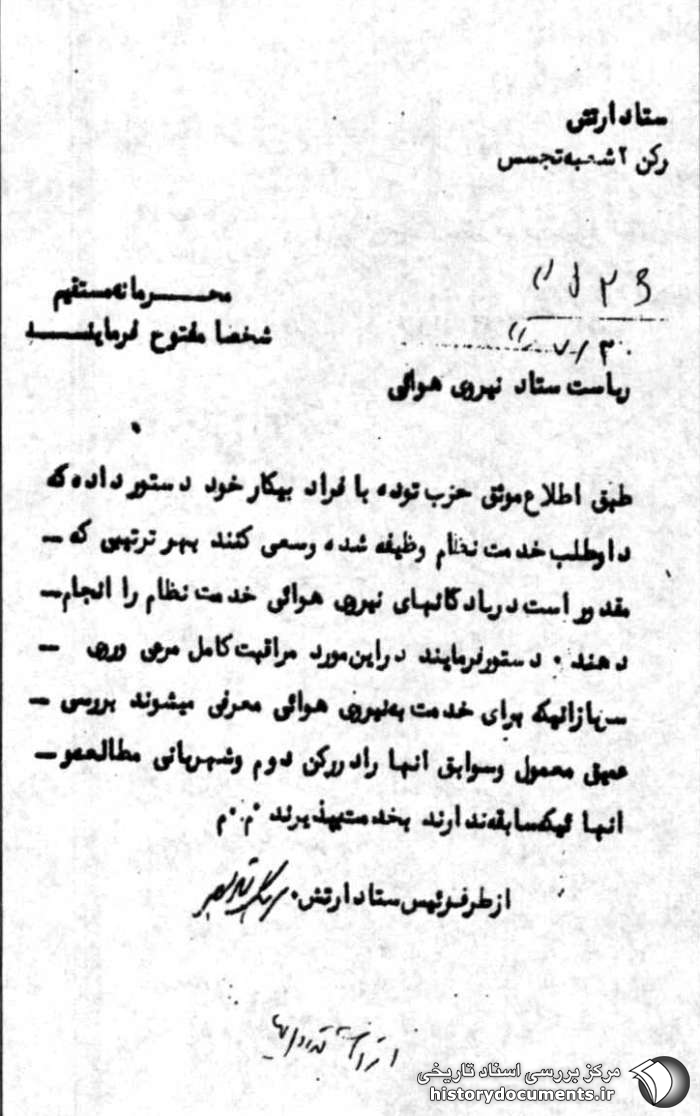 ستاد ارتش
رکن ۲ شعبه تجسس
محرمانه مستقیم
شخصا مفتوح فرمایند
ریاست ستاد نیروی هوائی
طبق اطلاع موثق حزب توده با فراد بیکار خود دستور داده که
داوطلب خدمت نظام وظیفه شده وسعی کنند بهر ترتیبی که
مقدور است در پادگانهای نیروی هوائی خدمت نظام را انجام
دهند ۰ دستور فرمایند در این مورد مراقبت کامل مرعی وروی
سربازانیکه برای خدمت به نیروی هوائی معرفی میشوند بررسی
عمیق معمول وسوابق انها را در رکن دوم وشهربانی مطالعه و
انها ئیکه سابقه ندارند بخدمت بپذیرند ۰م۰م
از طرف رئیس ستاد ارتش۰
مرکز بررسی اسناد تاریخی
historydocuments.ir